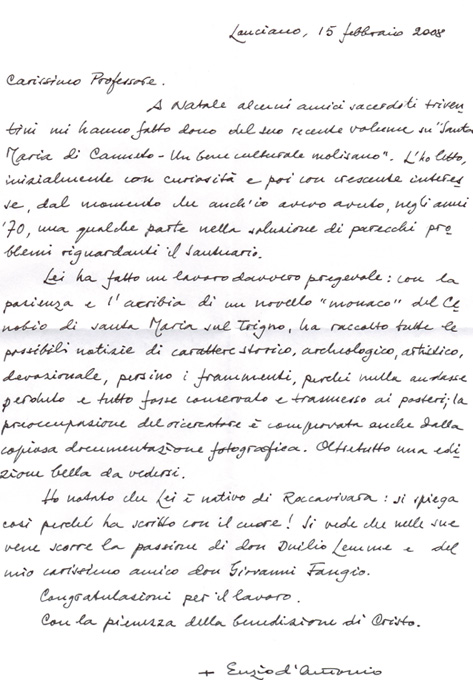 Lanciano, 15 febbraio 2008
Carissimo Professore.
A Natale alcuni amici sacerditi triven-
tini mi hanno fatto dono del suo recente volume su "Santa
Maria di Canneto - Un bene culturale molisano". L'ho letto,
inizialmente con curiosità e poi con crescente interes-
se, dal momento che anch'io avevo avuto, negli anni
'70, una qualche parte nella soluzione di parecchi pro-
blemi riguardanti il Santuario.
Lei ha fatto un lavoro davvero pregevole: con la
pazienza e l'acribia di un novello "monaco" del Ce-
nobio di Santa Maria sul Trigno, ha raccolto tutte le
possibili notizie di carattere storico, archeologico, artistico,
devozionale, persino i frammenti, perché nulla andasse
perduto e tutto fosse conservato e trasmesso ai posteri; la
preoccupazione del ricercatore è comprovata anche dalla
copiosa documentazione fotografica. Oltretutto una edi-
zione bella da vedersi.
Ho notato che Lei è nativo di Roccavivara: si spiega
così perché ha scritto con il cuore! Si vede che nelle sue
vene scorre la passione di don Duilio Lemme e del
mio carissimo amico don Giovanni Fangio.
Congratulazioni per il lavoro.
Con la pienezza della benedizione di Cristo.
+ Enzio d'Antonio